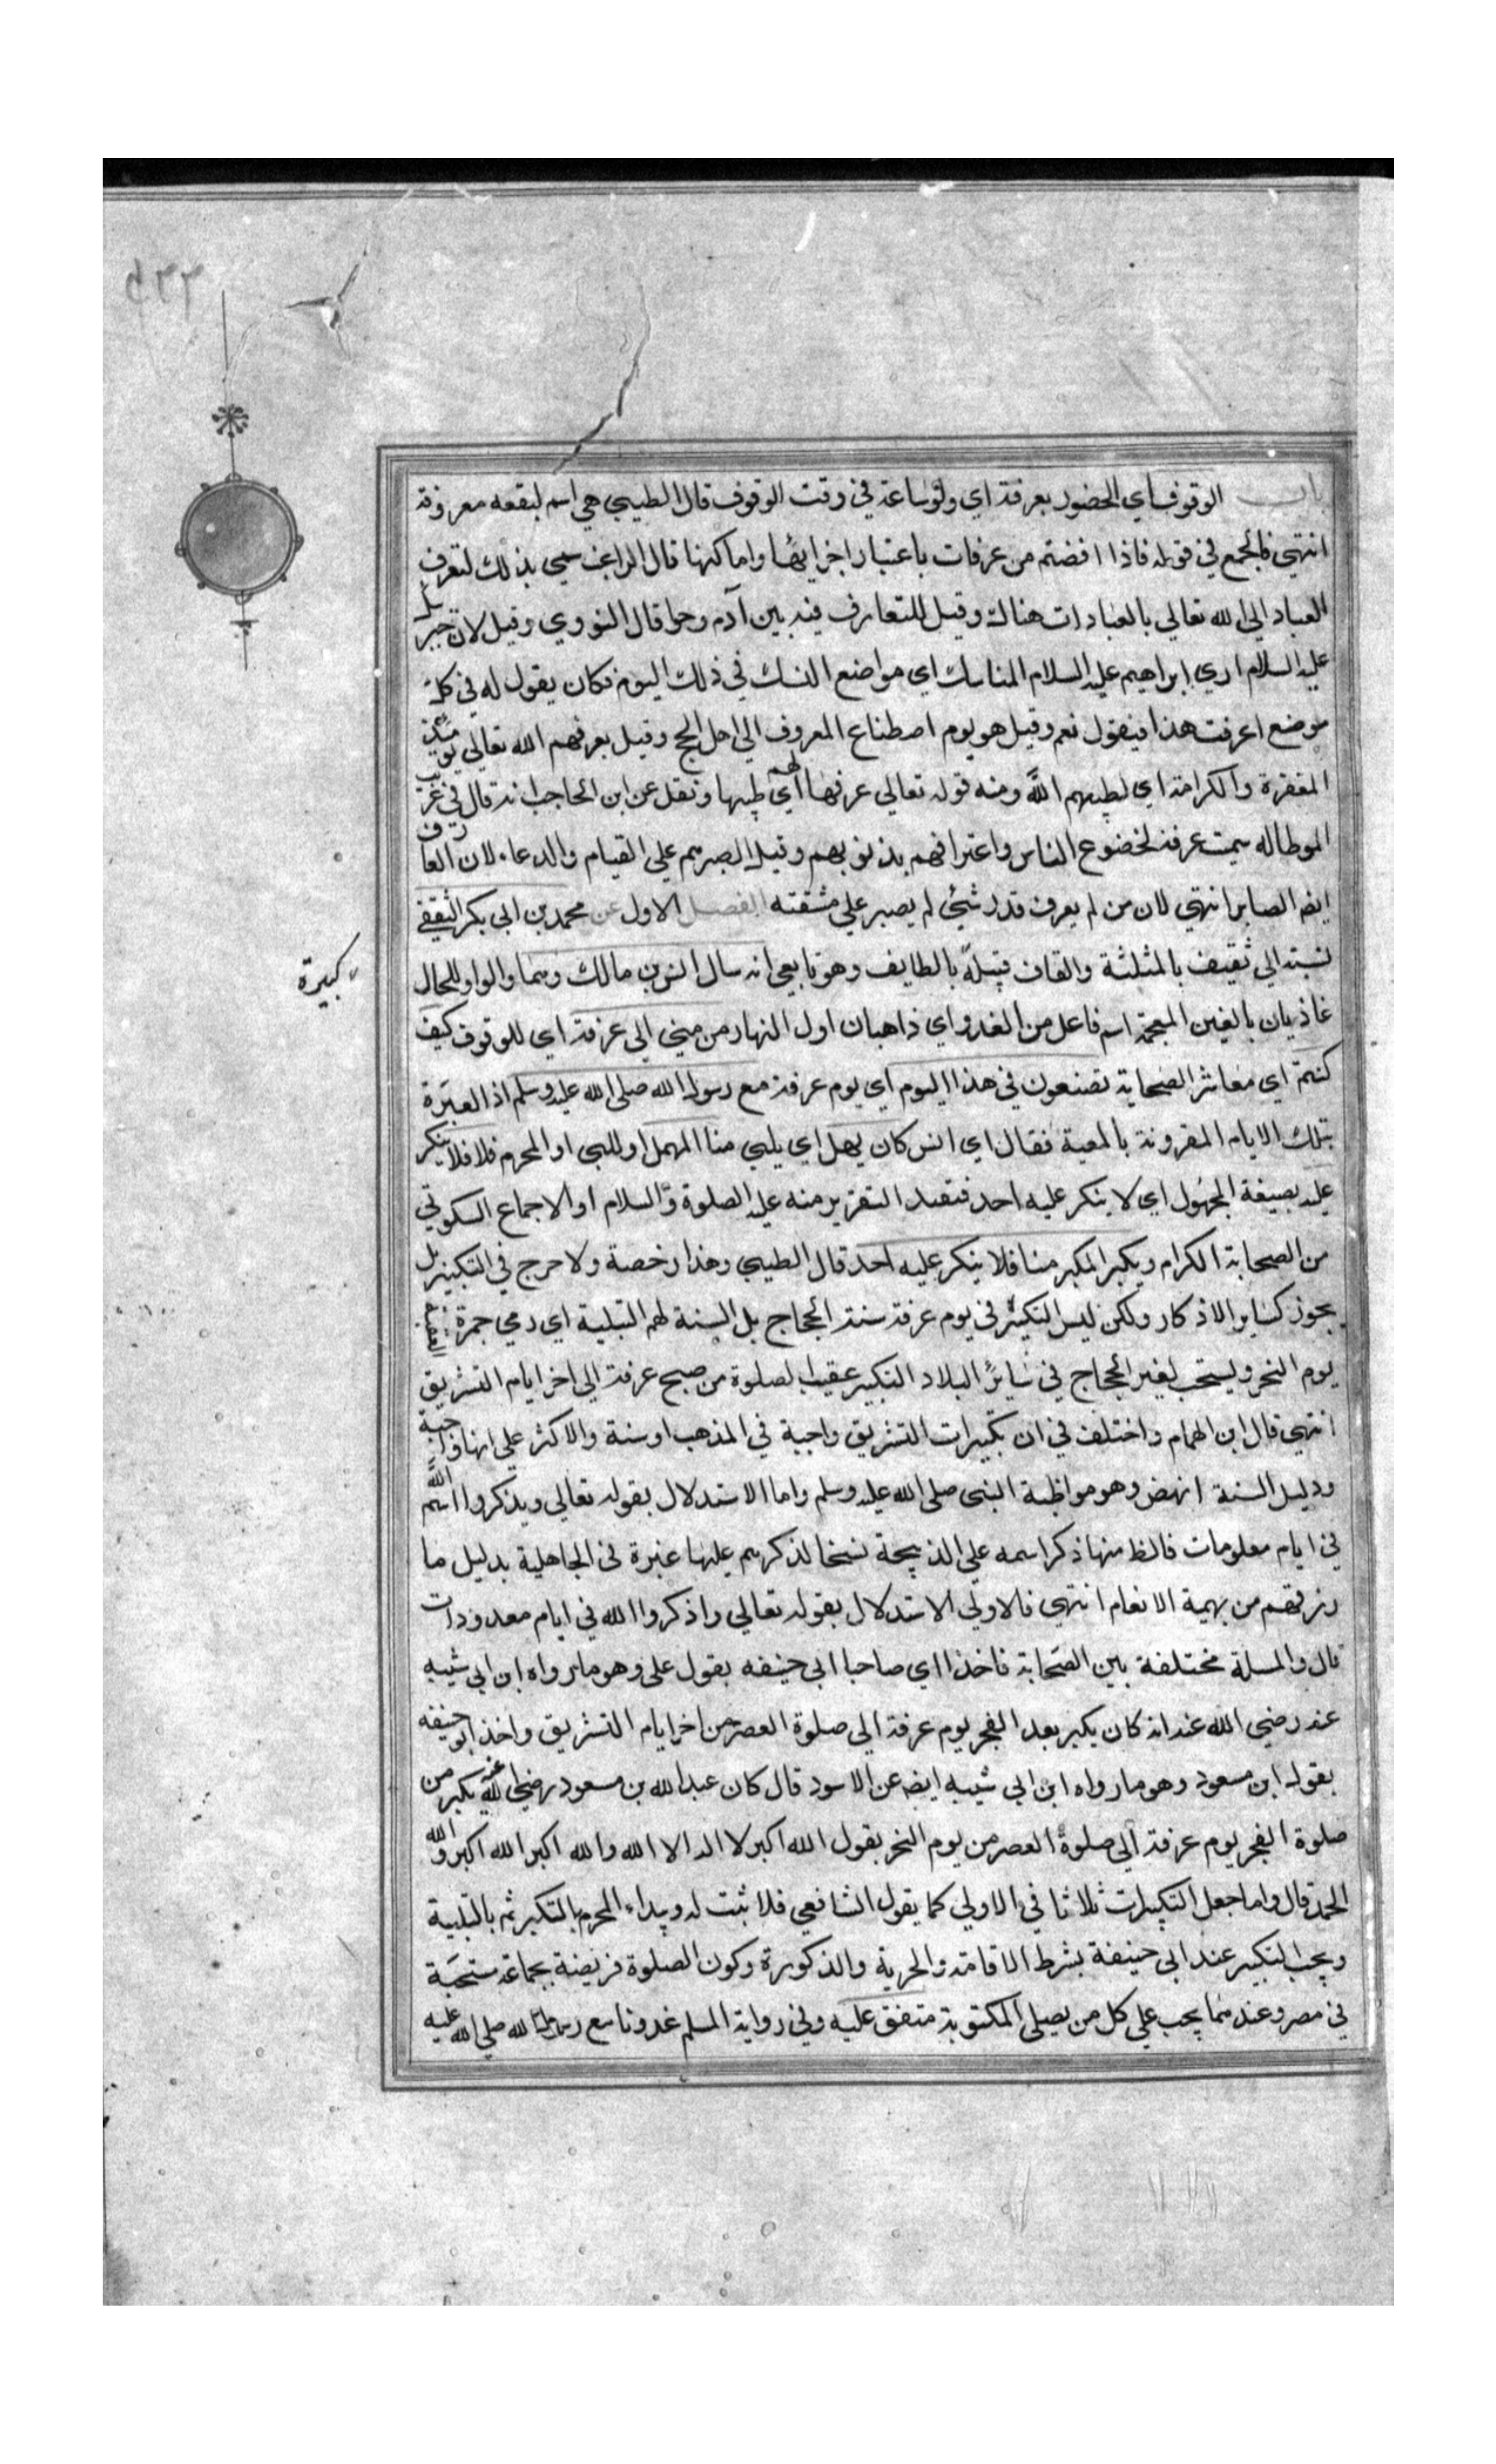 باب الوقوف اي الحضور بعرفة اي ولو ساعة في وقت الوقوف قال الطيبي هي اسم لبقعه معروفة
انتهي فالجمع في قوله فاذا افضتم من عرفات باعتبار اجزايها واماكنها قال الراغب سمي بذلك لتعرف
العباد الي الله تعالي بالعبادات هناك وقيل للتعارف فيه بين آدم وحوا قال النووي وقيل لان جبريل
عليه السلام اري ابراهيم عليه السلام المناسك اي مواضع النسك في ذلك اليوم فكان يقول له في كل
موضع اعرفت هذا فيقول نعم وقيل هو يوم اصطناع المعروف الي اهل الحج وقيل يعرفهم الله تعالي يوميذ
المغفرة والكرامة اي لطيبهم الله ومنه قوله تعالي عرفها لهم اي طيبها ونقل عن ابن الحاجب انه قال في غريب
الموطا له سميت عرفة لخضوع الناس واعترافهم بذنوبهم وقيل لصبرهم علي القيام والدعاء لان العارف
ايضا الصابر انتهي لان من لم يعرف قدر شئ لم يصبر علي مشقته الفصل الاول عن محمد بن ابي بكر الثقفي
نسبته الي ثقيف بالمثلثة والقاف قبيلة بالطايف وهو تابعي انه سال انس بن مالك وهما والواو للحال
غاذيان بالغين المعجمة اسم فاعل من الغدو اي ذاهبان اول النهار من مني الي عرفة اي للوقوف كيف
كنتم اي معاشر الصحابة تصنعون في هذا اليوم اي يوم عرفة مع رسول الله صلي الله عليه وسلم اذ العبرة
بتلك الايام المقرونة بالمعية فقال اي انس كان يهل اي يلبي منا المهل او للبي او المحرم فلا فلا ينكر
عليه بصيغة المجهول اي لا ينكر عليه احد فيفيد التقرير منه عليه الصلوة والسلام او الاجماع السكوتي
من الصحابة الكرام ويكبر المكبر منا فلا ينكر عليه احد قال الطيبي وهذا رخصة ولا حرج في التكبير بل
يجوز كساير الاذكار ولكن ليس التكبير في يوم عرفة سنة الحجاج بل السنة لهم التلبية اي رمي جمرة العقبة
يوم النحر ويستحب لغير الحجاج في سائر البلاد التكبير عقيب الصلوة من صبح عرفة الي اخر ايام التشريق
انتهي قال ابن الهمام واختلف في ان تكبيرات التشريق واجبة في المذهب او سنة والاكثر علي انها واجبة
ودليل السنة انهض وهو مواظبة النبي صلي الله عليه وسلم واما الاستدلال بقوله تعالي ويذكروا اسم الله
في ايام معلومات فالظ منها ذكر اسمه علي الذبيحة نسخا لذكرهم عليها غيره في الجاهلية بدليل ما
رزقهم من بهيمة الانعام انتهي فالاولي الاستدلال بقوله تعالي واذكروا الله في ايام معدودات
قال والمسلة مختلفة بين الصحابة فاخذا اي صاحبا ابي حنيفه بقول علي وهو ما رواه ابن ابي شيبه
عنه رضي الله عنه انه كان يكبر بعد الفجر يوم عرفة الي صلوة العصر من اخر ايام التشريق واخذ ابو حنيفه
بقول ابن مسعود وهو ما رواه ابن ابي شيبه ايضا عن الاسود قال كان عبد الله بن مسعود رضي الله عنه يكبر من
صلوة الفجر يوم عرفة الي صلوة العصر من يوم النحر يقول الله اكبر لا اله الا الله والله اكبر الله اكبر ولله
الحمد قال واما جعل التكبيرات ثلاثا في الاولي كما يقول الشافعي فلا ثبت له ويبداء المحرم بالتكبير ثم بالتلبية
ويجب التكبير عند ابي حنيفة بشرط الاقامة والحرية والذكورة وكون الصلوة فريضة بجماعة مستحبة
في مصر وعندهما يجب علي كل من يصلي المكتوبة متفق عليه وفي رواية المسلم غدونا مع رسول الله صلي الله عليه
كبيرة